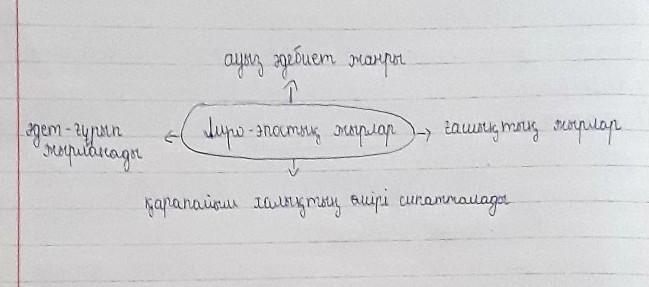 ауыз әдебиет жанры
әдет-ғұрып
жырланады
Лиро-эпостық жырлар
ғашықтық жырлар
қарапайым халықтың өмірі сипатталады